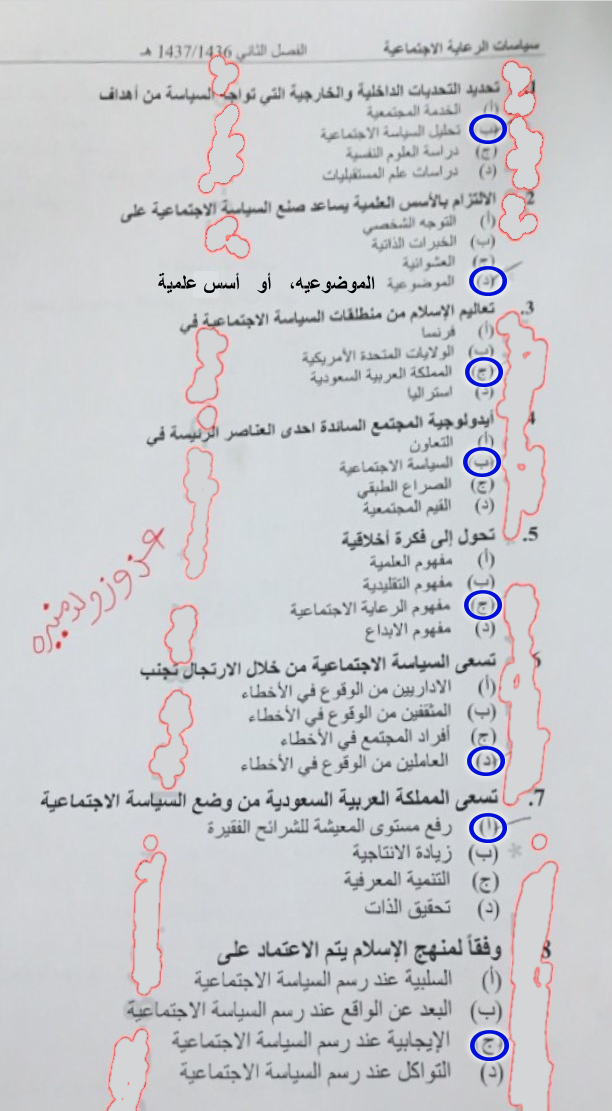 سياسات الرعاية الاجتماعية الفصل الثاني 1437/1436 هـ
1. تحديد التحديات الداخلية والخارجية التي تواجه السياسة من أهداف
(أ) الخدمة المجتمعية
(ب) تحليل السياسة الاجتماعية
(ج) دراسة العلوم النفسية
(د) دراسات علم المستقبليات
2. الالتزام بالأسس العلمية يساعد صنع السياسة الاجتماعية على
(أ) التوجه الشخصي
(ب) الخبرات الذاتية
(ج) العشوائية
(د) الموضوعية الموضوعيه، أو أسس علمية
3. تعاليم الإسلام من منطلقات السياسة الاجتماعية في
(أ) فرنسا
(ب) الولايات المتحدة الأمريكية
(ج) المملكة العربية السعودية
(د) استراليا
4 أيدولوجية المجتمع السائدة احدى العناصر الرئيسة في
(أ) التعاون
(ب) السياسة الاجتماعية
(ج) الصراع الطبقي
(د) القيم المجتمعية
5. تحول إلى فكرة أخلاقية
(أ) مفهوم العلمية
(ب) مفهوم التقليدية
(ج) مفهوم الرعاية الاجتماعية
(د) مفهوم الابداع
6 تسعى السياسة الاجتماعية من خلال الارتجال تجنب
(أ) الاداريين من الوقوع في الأخطاء
(ب) المثقفين من الوقوع في الأخطاء
(ج) أفراد المجتمع في الأخطاء
(د) العاملين من الوقوع في الأخطاء
7. تسعى المملكة العربية السعودية من وضع السياسة الاجتماعية
(أ) رفع مستوى المعيشة للشرائح الفقيرة
(ب) زيادة الانتاجية
(ج) التنمية المعرفية
(د) تحقيق الذات
8 وفقاً لمنهج الإسلام يتم الاعتماد على
(أ) السلبية عند رسم السياسة الاجتماعية
(ب) البعد عن الواقع عند رسم السياسة الاجتماعية
(ج) الإيجابية عند رسم السياسة الاجتماعية
(د) التواكل عند رسم السياسة الاجتماعية